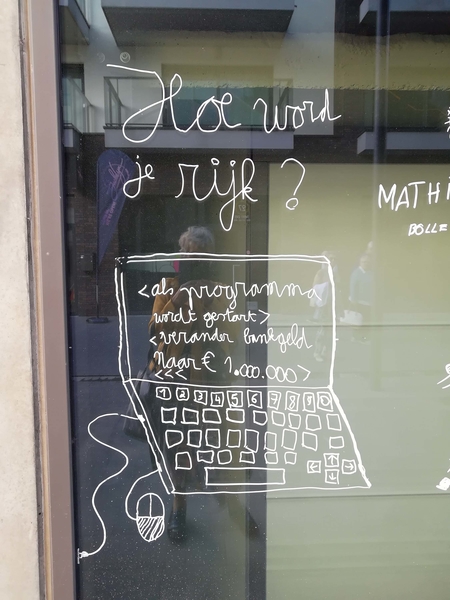 Hoe word
je rijk ?
MATHI
BOLLE
<als programma
wordt gestart>
<verander bankgeld
Naar € 1.000.000>
<<<
1 2 3 4 5 6 7 8 9 0